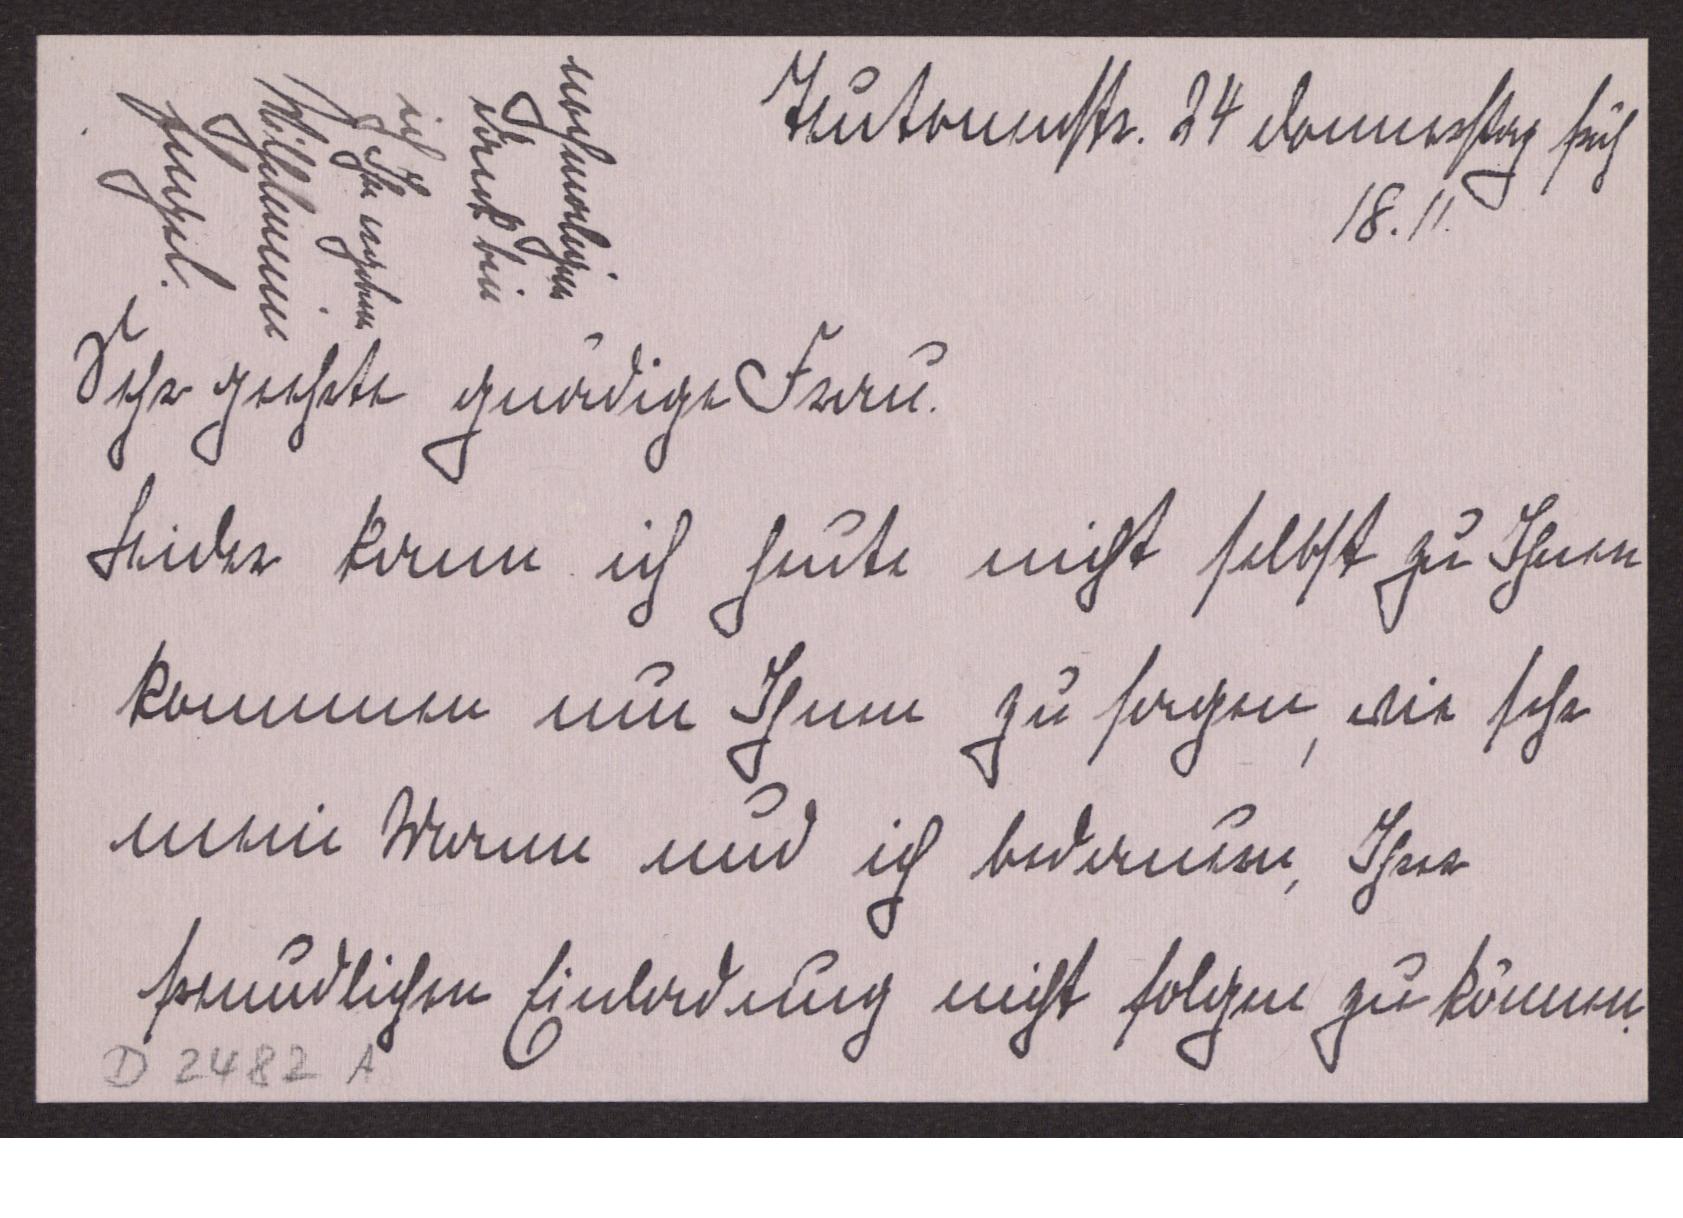 Teutonenstr. 24 Donnerstag früh
18.11.
Sehr geehrte gnädige Frau.
Leider kann ich heute nicht selbst zu Ihnen
kommen um Ihnen zu sagen, wie sehr
mein Mann und ich bedauern, Ihrer
freundlichen Einladung nicht folgen zu können.
nochmaligen
Dank bin
ich
Ihr ergeben
Wilhelmine
D 2482 A